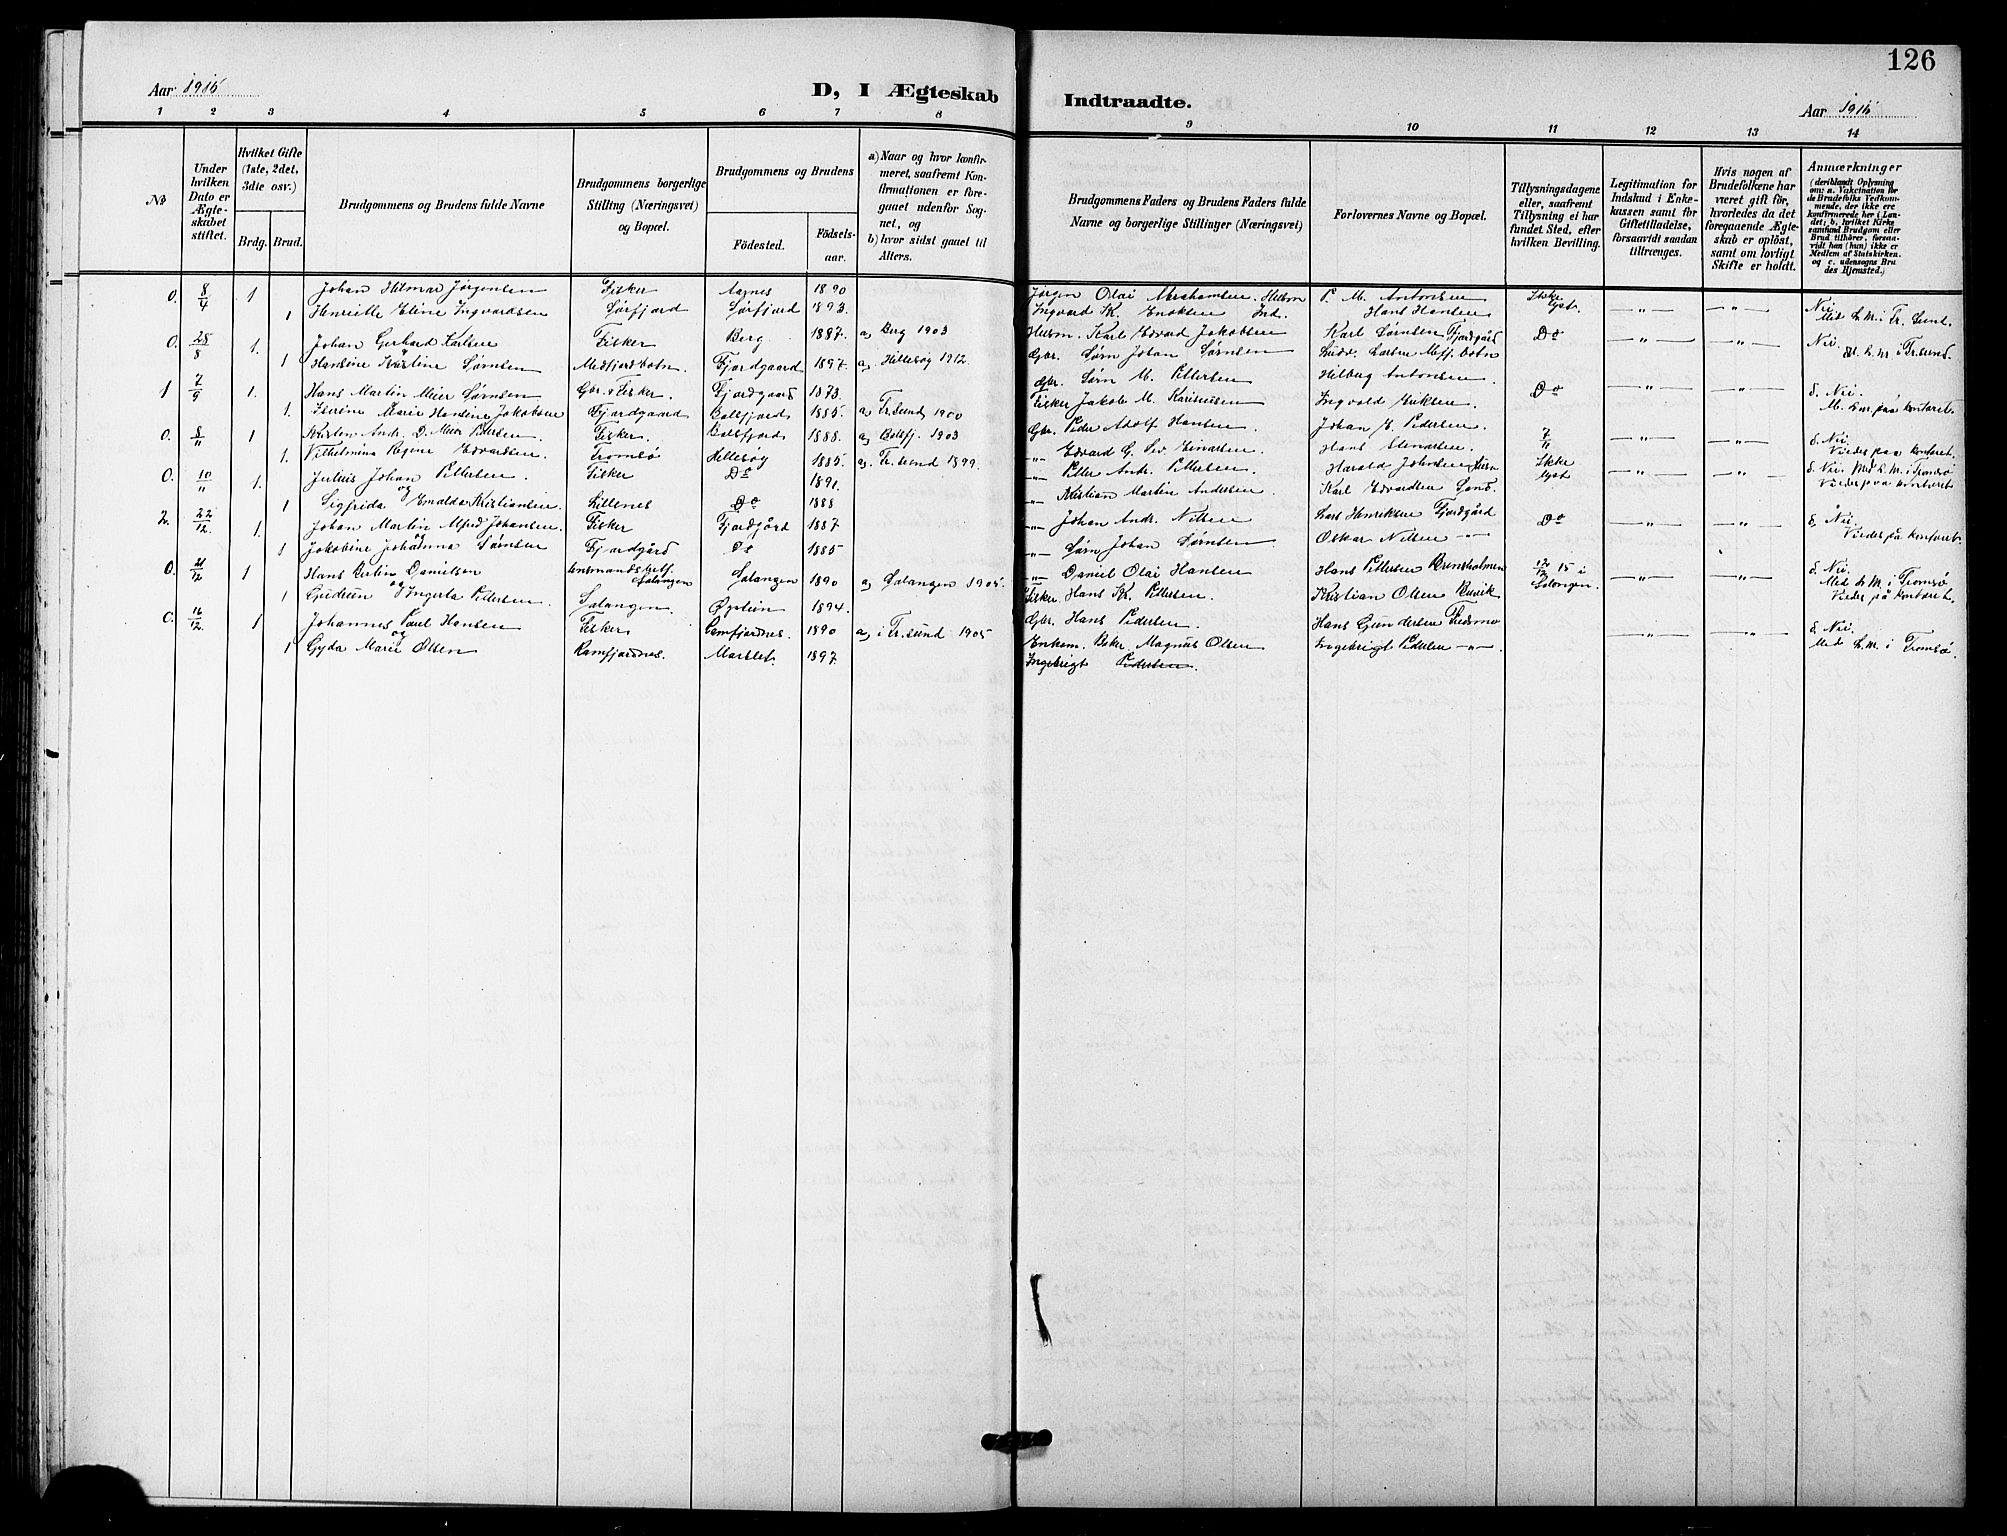 126
Aar 1915
D, I Ægteskab
Indtraadte.
Aar 1915
1 2 3 4 5 6 7 8 9 10 11 12 13 14
No
Under hvilken Dato er Ægteskabet stiftet.
Hvilket Gifte (1ste, 2det, 3die osv.)
Brdg. Brud.
Brudgommens og Brudens fulde Navne
Brudgommens borgerlige Stilling (Næringsvei) og Bopæl.
Brudgommens og Brudens
Fødested.
Fødselsaar.
a) Naar og hvor konfirmeret, saafremt Konfirmationen er foregaaet udenfor Sognet, og
b) hvor sidst gaaet til Alters.
Brudgommens Faders og Brudens Faders fulde Navne og borgerlige Stillinger (Næringsvei)
Forlovernes Navne og Bopæl.
Tillysningsdagene eller, saafremt Tillysning ei har fundet Sted, efter hvilken Bevilling.
Legitimation for Indskud i Enkekassen samt for Giftetilladelse, forsaavidt saadan tiltrænges.
Hvis nogen af Brudefolkene har været gift før, hvorledes da det foregaaende Ægteskab er opløst, samt om lovligt Skifte er holdt.
Anmærkninger
(deriblandt Oplysning om: a. Vakcination for de Brudefolks Vedkommende, der ikke ere konfirmerede her i Landet; b. hvilket Kirkesamfund Brudgom eller Brud tilhører, forsaavidt han (hun) ikke er Medlem af Statskirken. og c. udensogns Brudes Hjemsted.)
0. 8/4 1 Johan Hilmar Jørgensen Fisker Aagnes 1890 Jørgen Olai Abrahamsen. Husm P. M. Antonsen Ikke lyst. -"- -"- Nei
1 Henriette Eline Ingvardsen Sørfjord Sørfjord 1893. Ingvard K. Enoksen Ind. Hans Hansen Med L.M. i Tr. Sund.
0. 28/8 1. Johan Gerhard Karlsen Fisker Berg 1887. a, Berg 1903 Husm. Karl Edvard Jakobsen Karl Sørnsen Fjordgård Do -"- -"- Nei.
1 Hansine Kristine Sørnsen Medfjordbotn. Fjordgaard 1897. a, Hillesøy 1912. Gbr. Sørn Johan Sørnsen Ludv. Larsen Meff. botn i Tr.sund.
1 7/9 1. Hans Martin Meier Sørnsen Gbr. & Fisker. Fjordgaard 1873. Gbr. Sørn M. Pettersen Hilberg Antonsen. Do -"- -"- d. Nei.
1. Marie Hansine Jakobsen Fjordgaard Balsfjord 1885. a, Tr.sund 1900 Fisker Jakob M. Ingvald Eriksen. M. paa kontoret.
0. 8/11 1 Kristen Andr. D. Meier Pedersen. Fisker. Balsfjord 1888. a, Balsfj. 1903 Gbr. Peder Adolf Hansen Johan E. Pedersen. 7/11 -"- -"- d. Nei.
1. Vilhelmina Regine Edvardsen. Tromsø Hillesøy 1885. a, Tr.sund 1899. -"- Edvard G. Hans Vies paa kontoret.
0. 10/11 1. Julius Johan Pettersen Fisker Do 1891. -"- Petter Andr. Pettersen. Harald Johnsen Ikke lyst -"- -"- d. Nei. Med L.M. i Tromsø
og
1 Sigfrida Emalda Kristiansen. Lillenes Do 1888 -"- Kristian Martin Andersen Karl Edvardsen Vies paa kontoret
2. 22/12. 1. Johan Martin Alfred Johansen. Fisker Fjordgård 1887 -"- Johan Andr. Nilsen Lars Henriksen Fjordgård Do -"- -"- d, Nei.
1 Jakobine Johanna Sørnsen Fjordgård Do 1885 -"- Sørn Johan Sørnsen Oskar Nilsen -"- Vies på kontoret.
0. 21/12 1 Hans Bertin Danielsen Salangen Salangen 1890 a, Salangen 1905. -"- Daniel Olai Hansen Hans Pettersen 12/12 15 i Salangen. -"- -"- d. Nei.
og
1 Ingerla Pettersen. Salangen. 1894. Fisker Hans Kr. Pettersen. Kristian Olsen Med L.M. i Tromsø Vies på kontoret.
0. 16/12. 1 Johannes Paul Hansen Fisker Ramfjordnes. 1890 a, i Tr.sund 1905 Gbr. Hans Pedersen Hans Gundersen -"- -"- d. Nei.
og
1 Gyda Marie Olsen Ramfjordnes. 1897. Enkem. Magnus Olsen Ingebrigt Pedersen -"- Med L.M. i Tromsø.
Ingebrigt Pedersen.